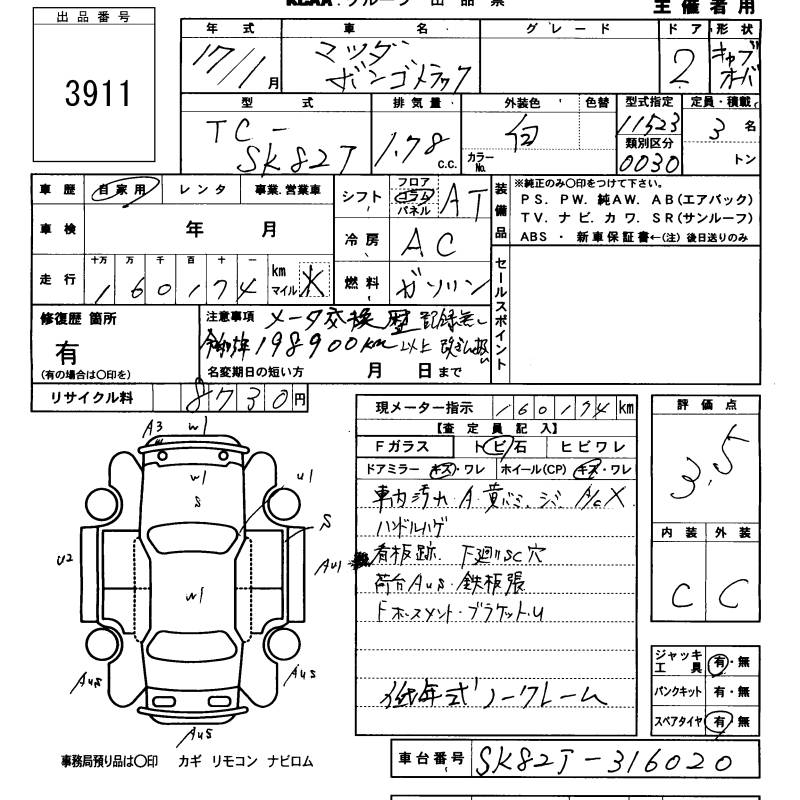 グループ 出品票
主催者用
出品番号
3911
年式 車名 グレード ドア 形状
17/1月 マツダ ボンゴトラック 2 キャブオーバ
型式 排気量 外装色 色替 型式指定 定員・積載
TC-SK82T 1.78 c.c. 白 カラーNo. 11523 3名
類別区分
0030 トン
車歴 自家用 レンタ 事業.営業車
シフト フロア コラム パネル AT
装備品
※純正のみ○印をつけて下さい。
PS. PW. 純AW. AB(エアバック)
TV. ナビ. カワ. SR(サンルーフ)
ABS ・ 新車保証書←(注)後日送りのみ
車検 年 月
冷房 AC
走行 十万 万 千 百 十 一
160174 km マイル
燃料 ガソリン
セールスポイント
修復歴 箇所
有
(有の場合は○印を)
注意事項 メータ交換歴 記録無し
198900km以上
名変期日の短い方 月 日まで
リサイクル料 8730円
現メーター指示 160174km
【査定員記入】
Fガラス トビ石 ヒビワレ
ドアミラー キズ・ワレ ホイール(CP) キズ・ワレ
車内汚れ・A 黄バミ、シミ A/C X
ハンドルハゲ
看板跡. 下廻りSC穴
荷台AuS・鉄板張
Fホースメント・ブラケットU
低年式ノークレーム
評価点
3.5
内装 外装
C C
ジャッキ工具 有・無
パンクキット 有・無
スペアタイヤ 有・無
A3 w1
w1
S
u1
S
u2
Au1
w1
AuS
AuS
AuS
事務局預り品は○印 カギ リモコン ナビロム
車台番号 SK82T-316020